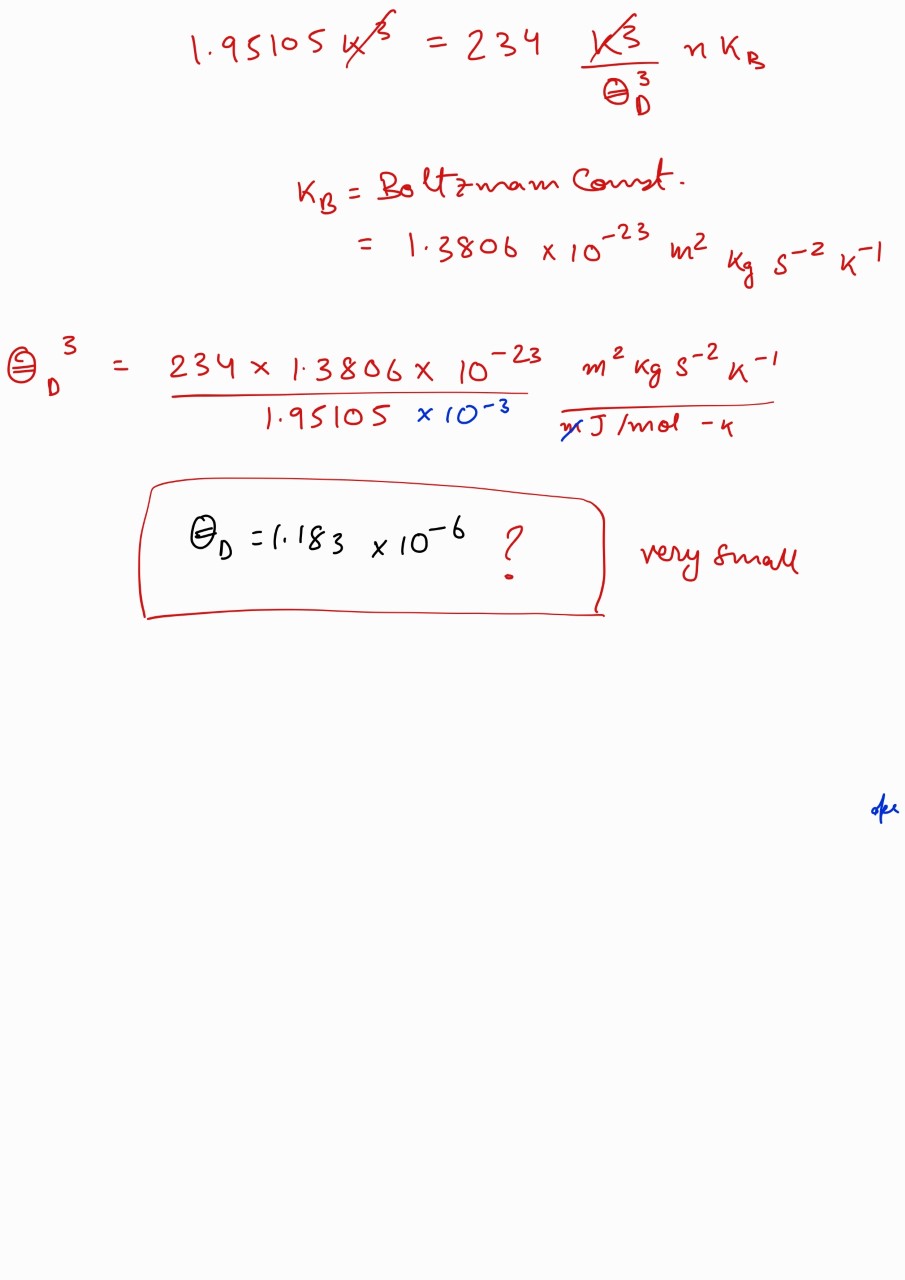 1.95105 K³ = 234 K³/Θ_D³ n K_B
K_B = Boltzmann Const.
= 1.3806 × 10⁻²³ m² Kg S⁻² K⁻¹
Θ_D³ = 234 × 1.3806 × 10⁻²³ / 1.95105 × 10⁻³ m² Kg S⁻² K⁻¹ / mJ/mol - K
Θ_D = 1.183 × 10⁻⁶ ? very small